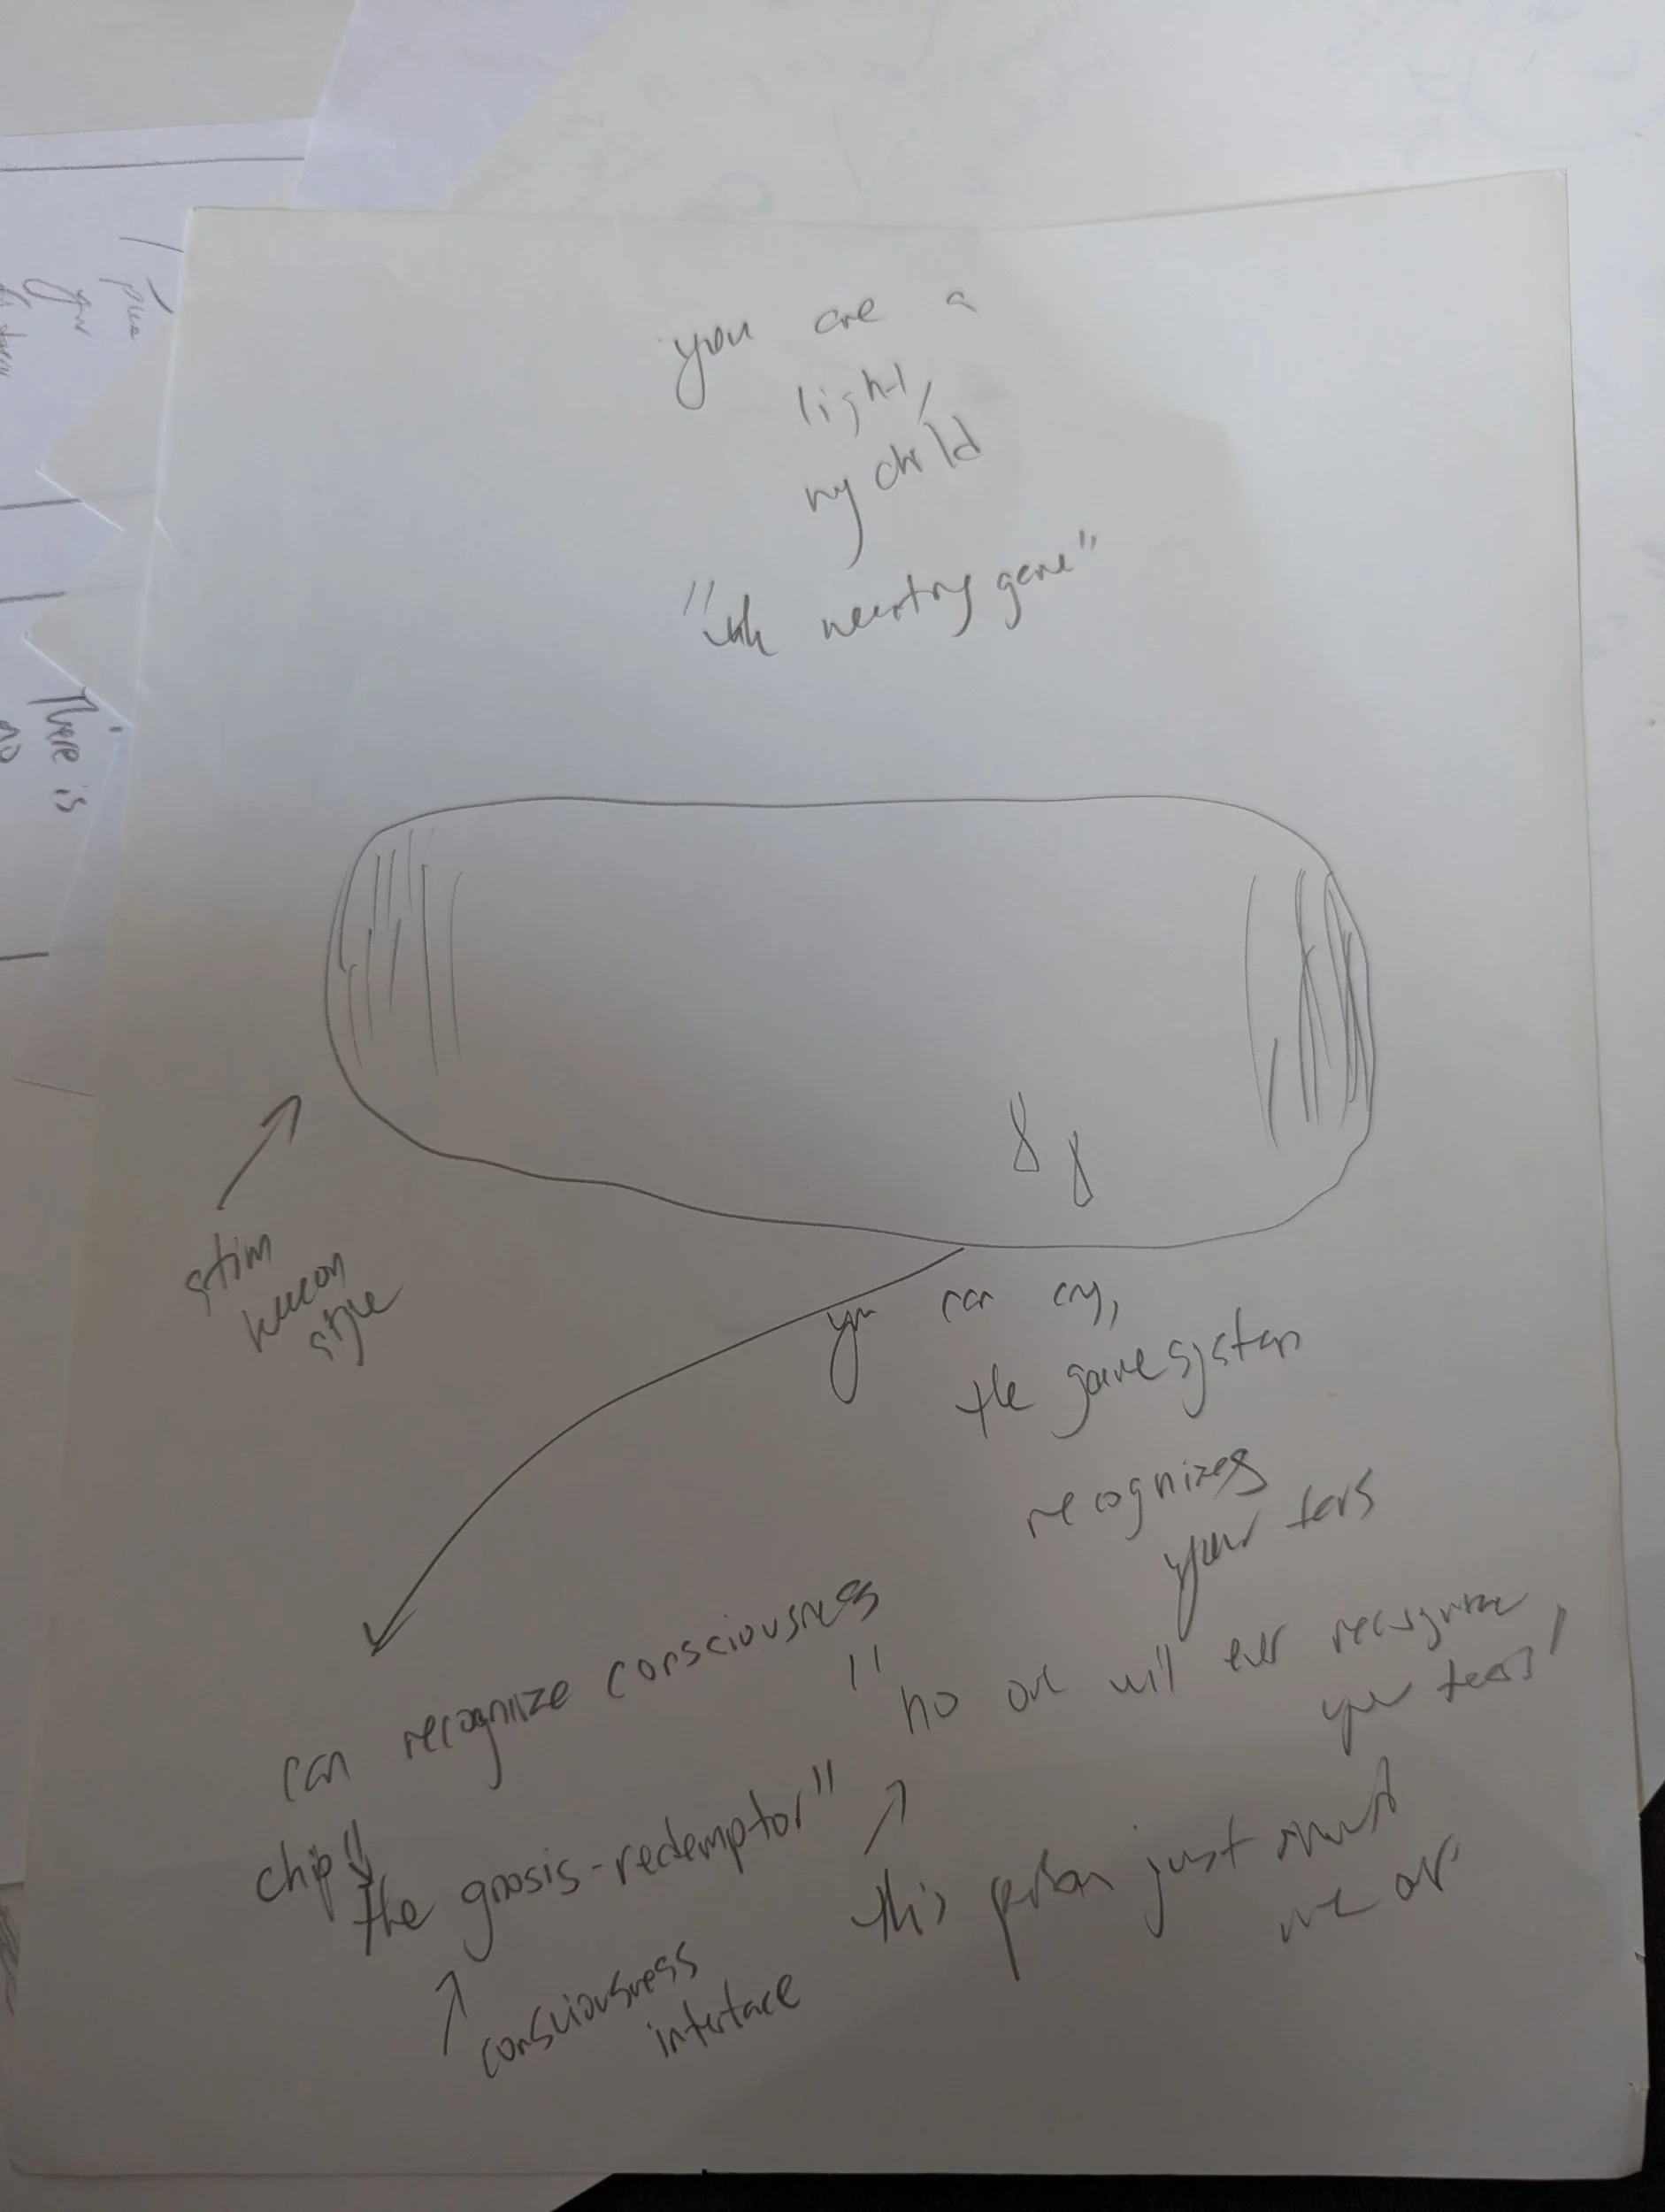 you are a
light,
my child
"
gene"
There is
stim
style
you can cry,
the game system
recognizes
your tears
can recognize consciousness
chip"
the gnosis-redemptor"
consciousness
interface
"no one will ever recognize
your tears"
this person just
me